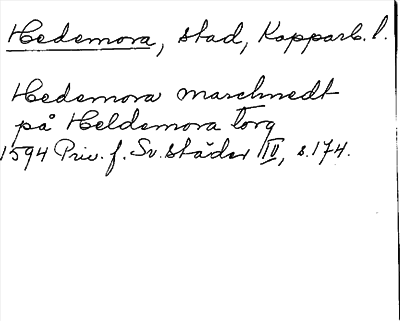 Hedemora, stad, Kopparb. l.
Hedemora marchnedt
på Heldemora torg
1594 Priv. f. Sv. städer IV, s. 174.